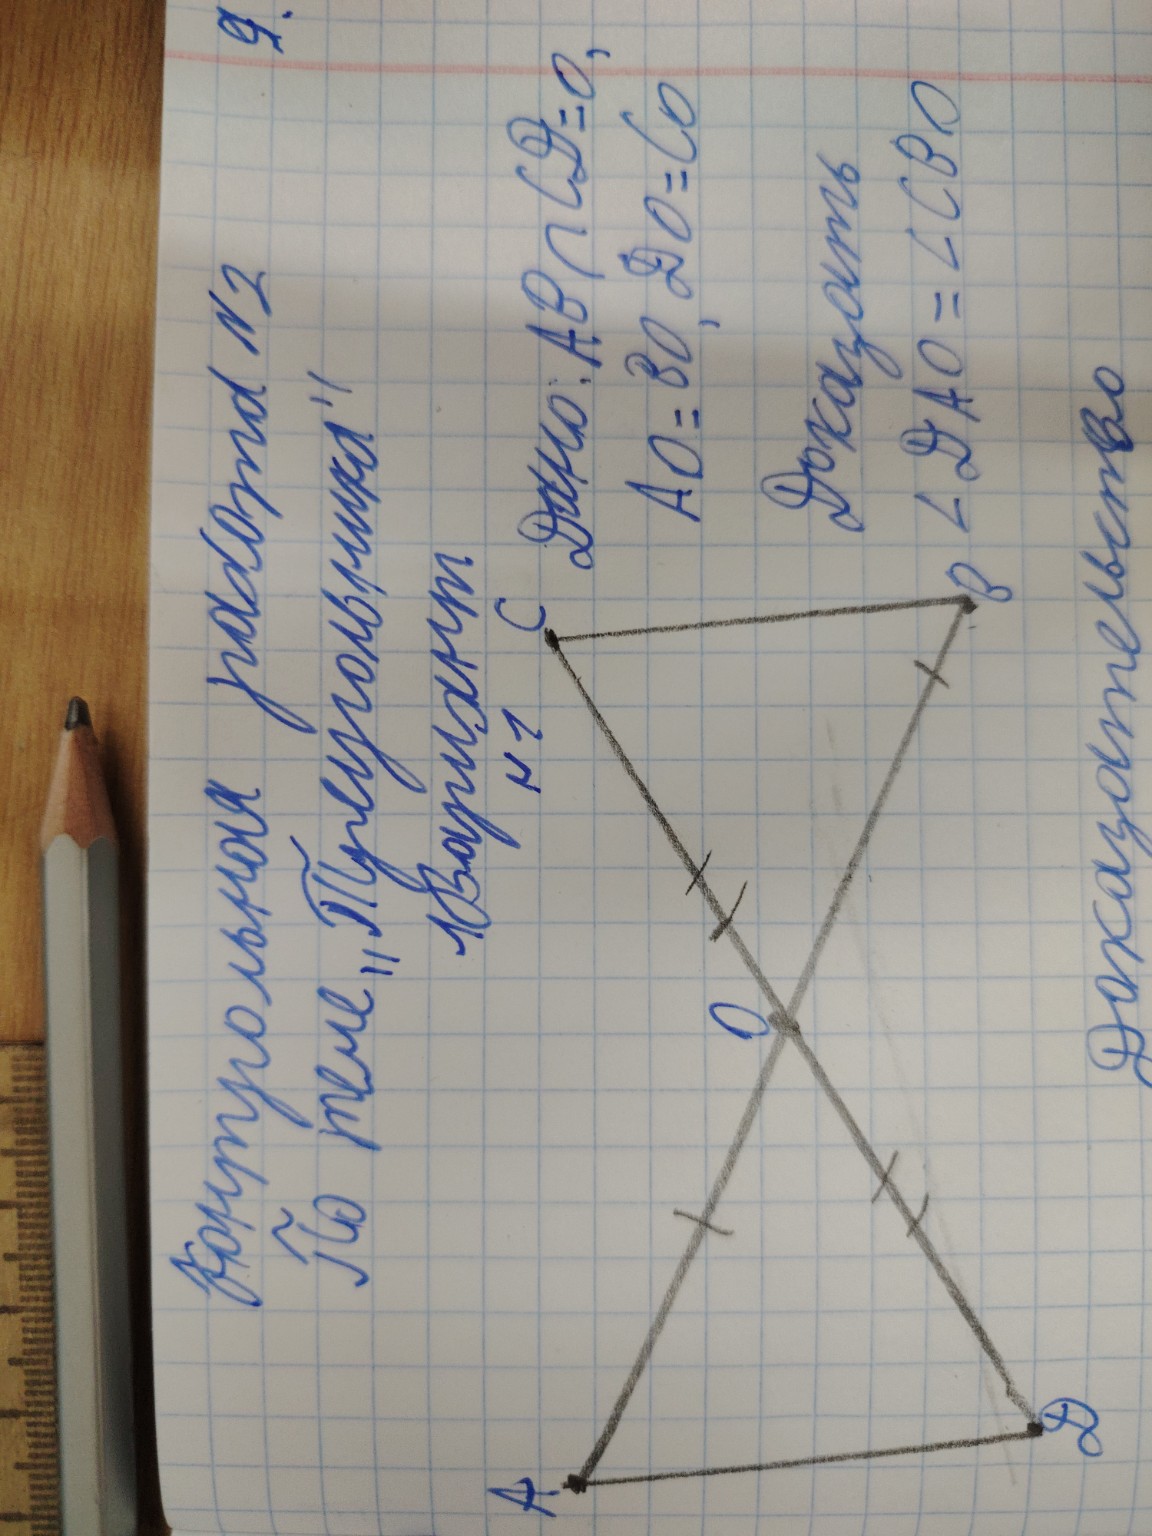 9.
Контрольная работа N2
По теме „Треугольника"
1Вариант
N1
Дано: AB ∩ CD=O,
AO=BO, DO=CO
Доказать
∠DAO=∠CBO
A
C
O
B
D
Доказательство